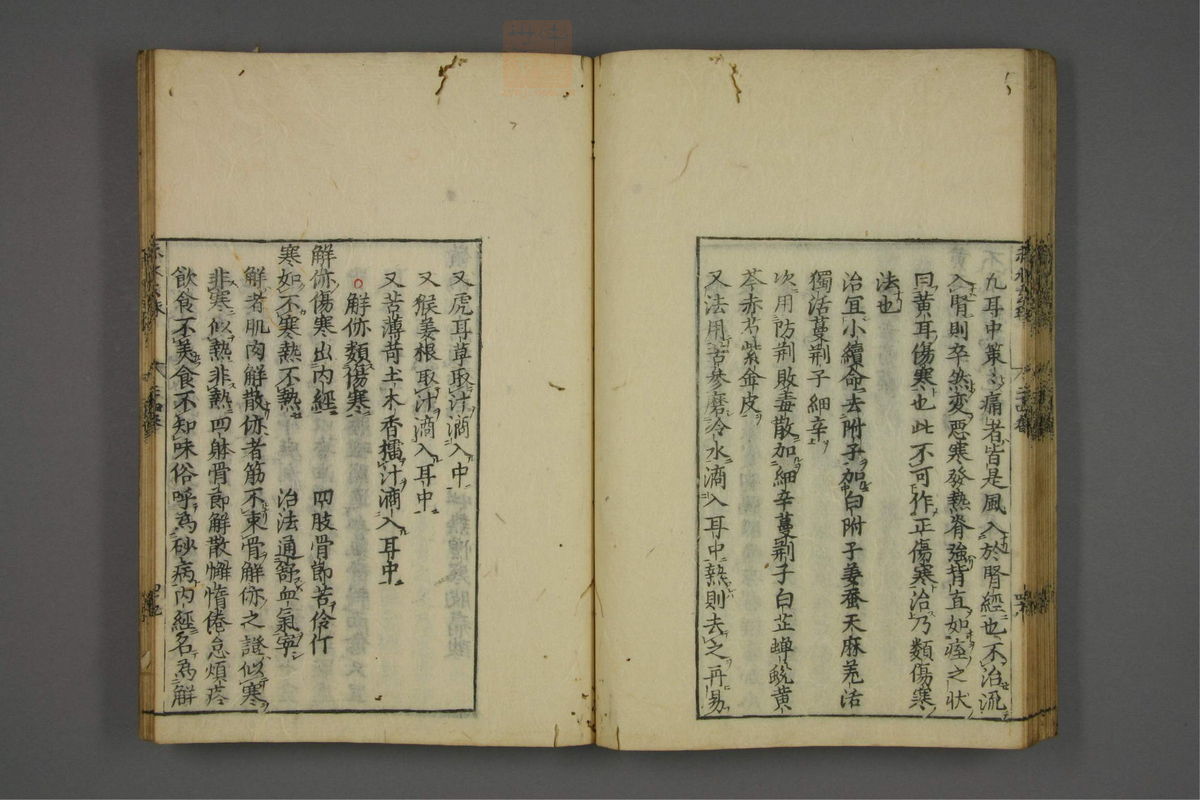 九耳中策〻痛者皆是風入於腎經也不治流
入腎則卒然変悪寒發熱脊強背直如痓之状
曰黄耳傷寒也此不可作正傷寒治乃類傷寒
法也
治宜小續命去附子加白附子姜蚕天麻羌活
獨活蔓荆子細辛
次用防荆敗毒散加細辛蔓荆子白芷蝉蛻黄
芩赤芍紫金皮
又法用苦參磨冷水滴入耳中熱則去之再易
又虎耳草取汁滴入中
又猴姜根取汁滴入耳中
又苦薄苛土木香擂汁滴入耳中
解㑊類傷寒
解㑊傷寒出内經 四肢骨節苦伶仃
寒如不寒熱不熱 治法通舒血氣寧
解者肌肉解散㑊者筋不束骨解㑊之證似寒
非寒似熱非熱四躰骨節解散懈惰倦怠煩疼
飲食不美食不知味俗呼為砂病内經名為解